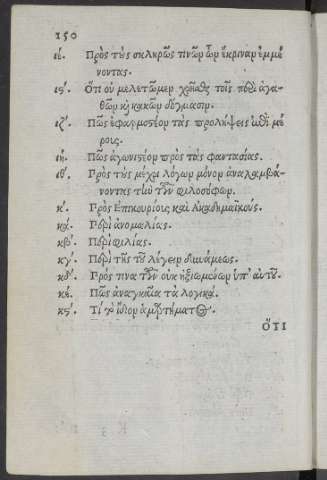 150
ιέ. Πρὸς τοὺς σκληρῶς τισὶν ὧν ἔκριναν ἐμμέ
νοντας.
ις΄. Ὅτι οὐ μελετῶμεν χρῆσθαι τοῖς περὶ ἀγα-
θῶν καὶ κακῶν δόγμασιν.
ιζ΄. Πῶς ἐφαρμοστέον τὰς προλήψεις ἐπὶ μέ
ροις.
ιή. Πῶς ἀγωνιστέον πρὸς τὰς φαντασίας.
ιθ΄. Πρὸς τοὺς μέχρι λόγων μόνον ἀναλαμβά-
νοντας τῶν φιλοσόφων.
κ΄. Πρὸς Επικουρίους καὶ Ακαδημαϊκούς.
κά. Περὶ ἀνομαλίας.
κβ΄. Περὶ φιλίας.
κγ΄. Περὶ τῆς τοῦ λέγειν δυνάμεως.
κδ΄. Πρός τινα τῶν οὐκ ἠξιωμένων ὑπ᾽ αὐτοῦ.
κέ. Πῶς ἀναγκαῖα τὰ λογικά.
κς΄. Τί τὸ ἴδιον ἁμαρτήματος.
ὅτι